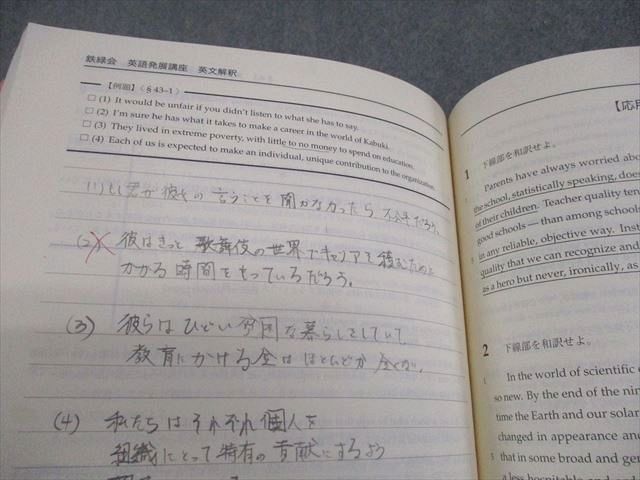 鉄緑会 英語発展講座 英文解釈
【例題】〈§43–1〉
□ (1) It would be unfair if you didn't listen to what she has to say.
□ (2) I'm sure he has what it takes to make a career in the world of Kabuki.
□ (3) They lived in extreme poverty, with little to no money to spend on education.
□ (4) Each of us is expected to make an individual, unique contribution to the organization.
(1) もし君が彼女の言うことを聞かなかったら不公平だろう。
(2) 彼はきっと歌舞伎の世界でキャリアを積むために
かかる時間をもっているだろう。
(3) 彼らはひどい貧困な暮らしをしていて
教育にかける金はほとんどか全くない。
(4) 私たちはそれぞれ個人を
組織にとって特有の貢献にするよう
【応用
1 下線部を和訳せよ。
Parents have always worried abo
the school, statistically speaking, does
of their children. Teacher quality ten
good schools — than among schools
5 in any reliable, objective way. Inst
quality that we can recognize and
as a hero but never, ironically, as
2 下線部を和訳せよ。
In the world of scientific
so new. By the end of the nin
time the Earth and our sola
changed in appearance and
5 that in some broad and gen
a less hospitable and